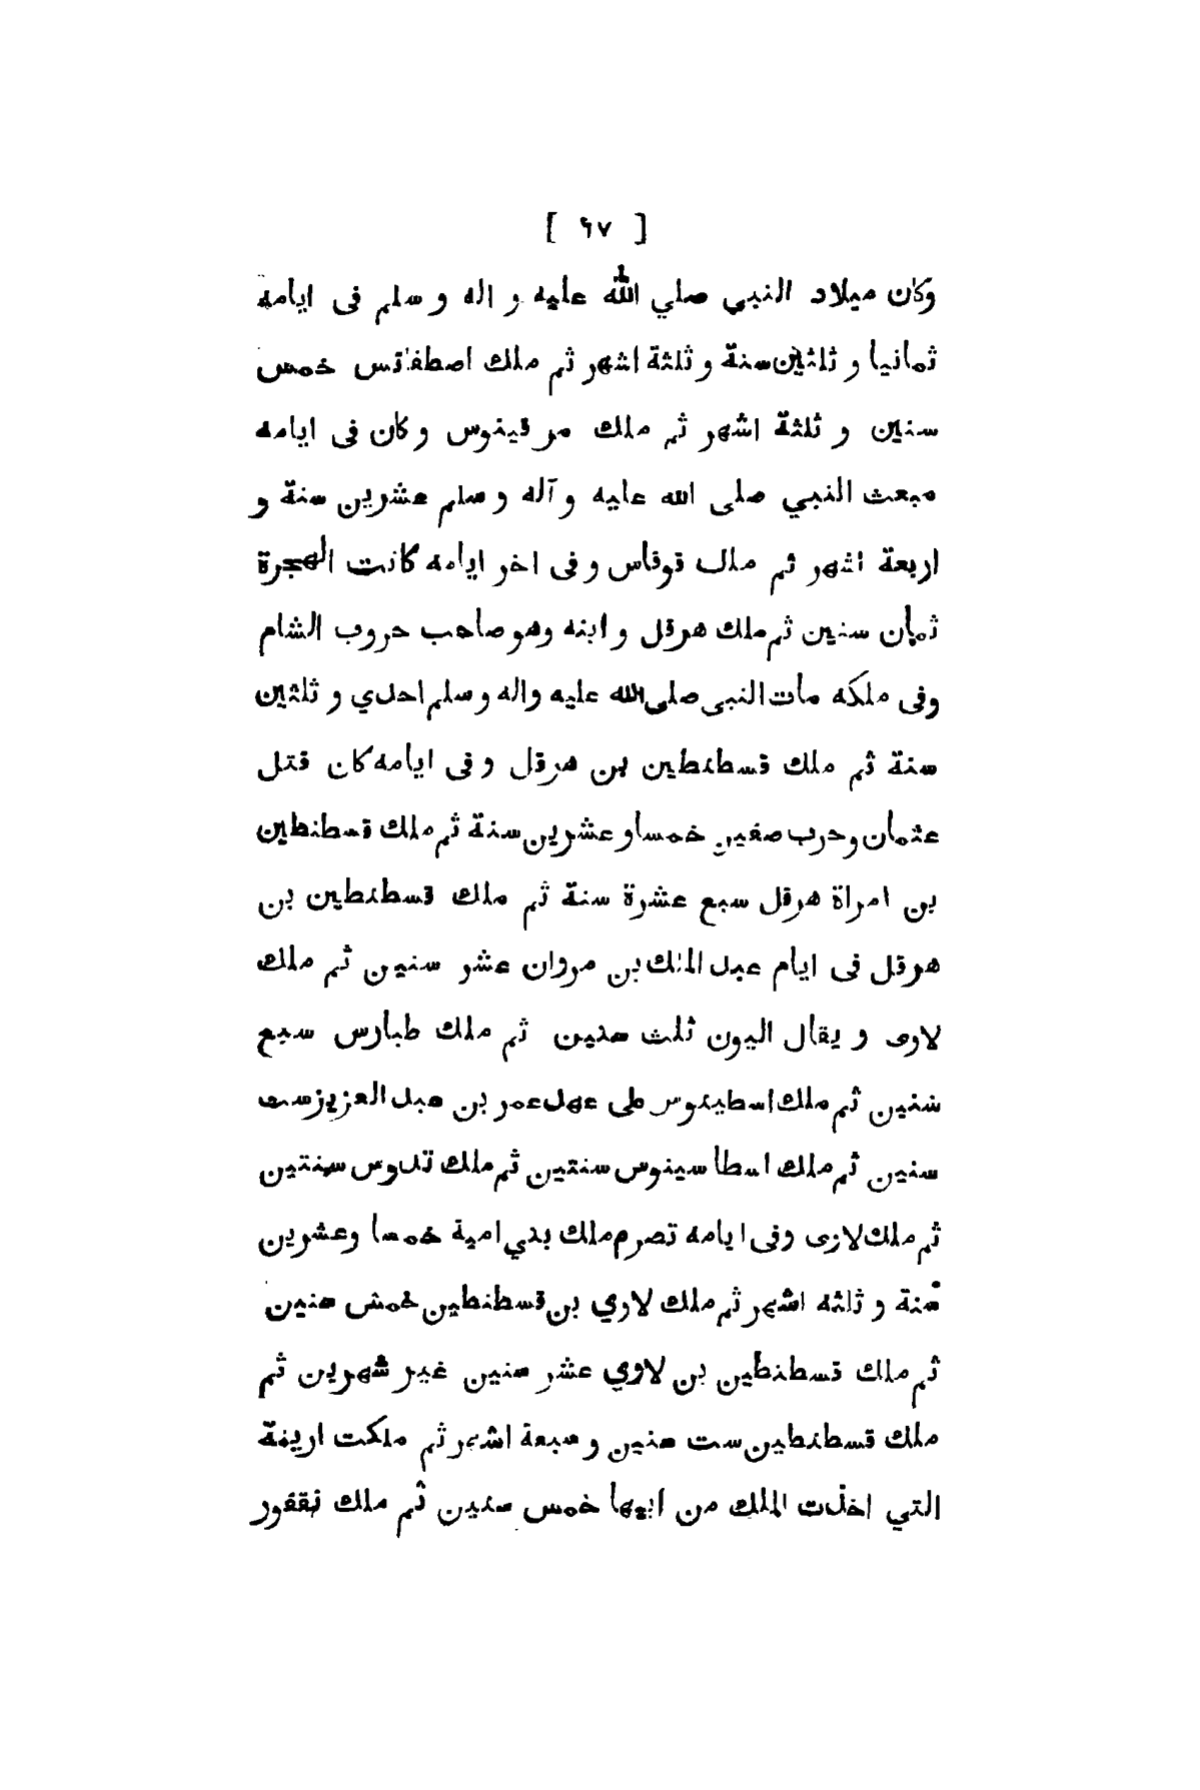 [ ٦٧ ]
وكان ميلاد النبي صلي الله عليه و اله و سلم فى ايامة
ثمانيا و ثلثين سنة و ثلثة اشهر ثم ملك اصطفاتس خمس
سنين و ثلثة اشهر ثم ملك مر قينوس و كان فى ايامه
مبعث النبي صلى الله عليه و آله و سلم عشرين سنة و
اربعة اشهر ثم ملك قوفاس و فى اخر ايامه كانت الهجرة
ثمان سنين ثم ملك هرقل و ابنه وهو صاحب حروب الشام
وفى ملكه مات النبى صلى الله عليه واله وسلم احدي و ثلثين
سنة ثم ملك قسطنطين بن هرقل و فى ايامه كان قتل
عثمان وحرب صفين خمسا و عشرين سنة ثم ملك قسطنطين
بن امراة هرقل سبع عشرة سنة ثم ملك قسطنطين بن
هرقل فى ايام عبد الملك بن مروان عشر سنين ثم ملك
لاوى و يقال اليون ثلث سنين ثم ملك طبارس سبع
سنين ثم ملك اسطينوس على عهد عمر بن عبد العزيز ست
سنين ثم ملك اسطا سينوس سنتين ثم ملك تدوس سنتين
ثم ملك لاوى وفى ايامه تصرم ملك بني امية خمسا وعشرين
سنة و ثلثه اشهر ثم ملك لاوي بن قسطنطين خمس سنين
ثم ملك قسطنطين بن لاوي عشر سنين غير شهرين ثم
ملك قسطنطين ست سنين و سبعة اشهر ثم ملكت ارينة
التي اخذت الملك من ابيها خمس سنين ثم ملك نقفور